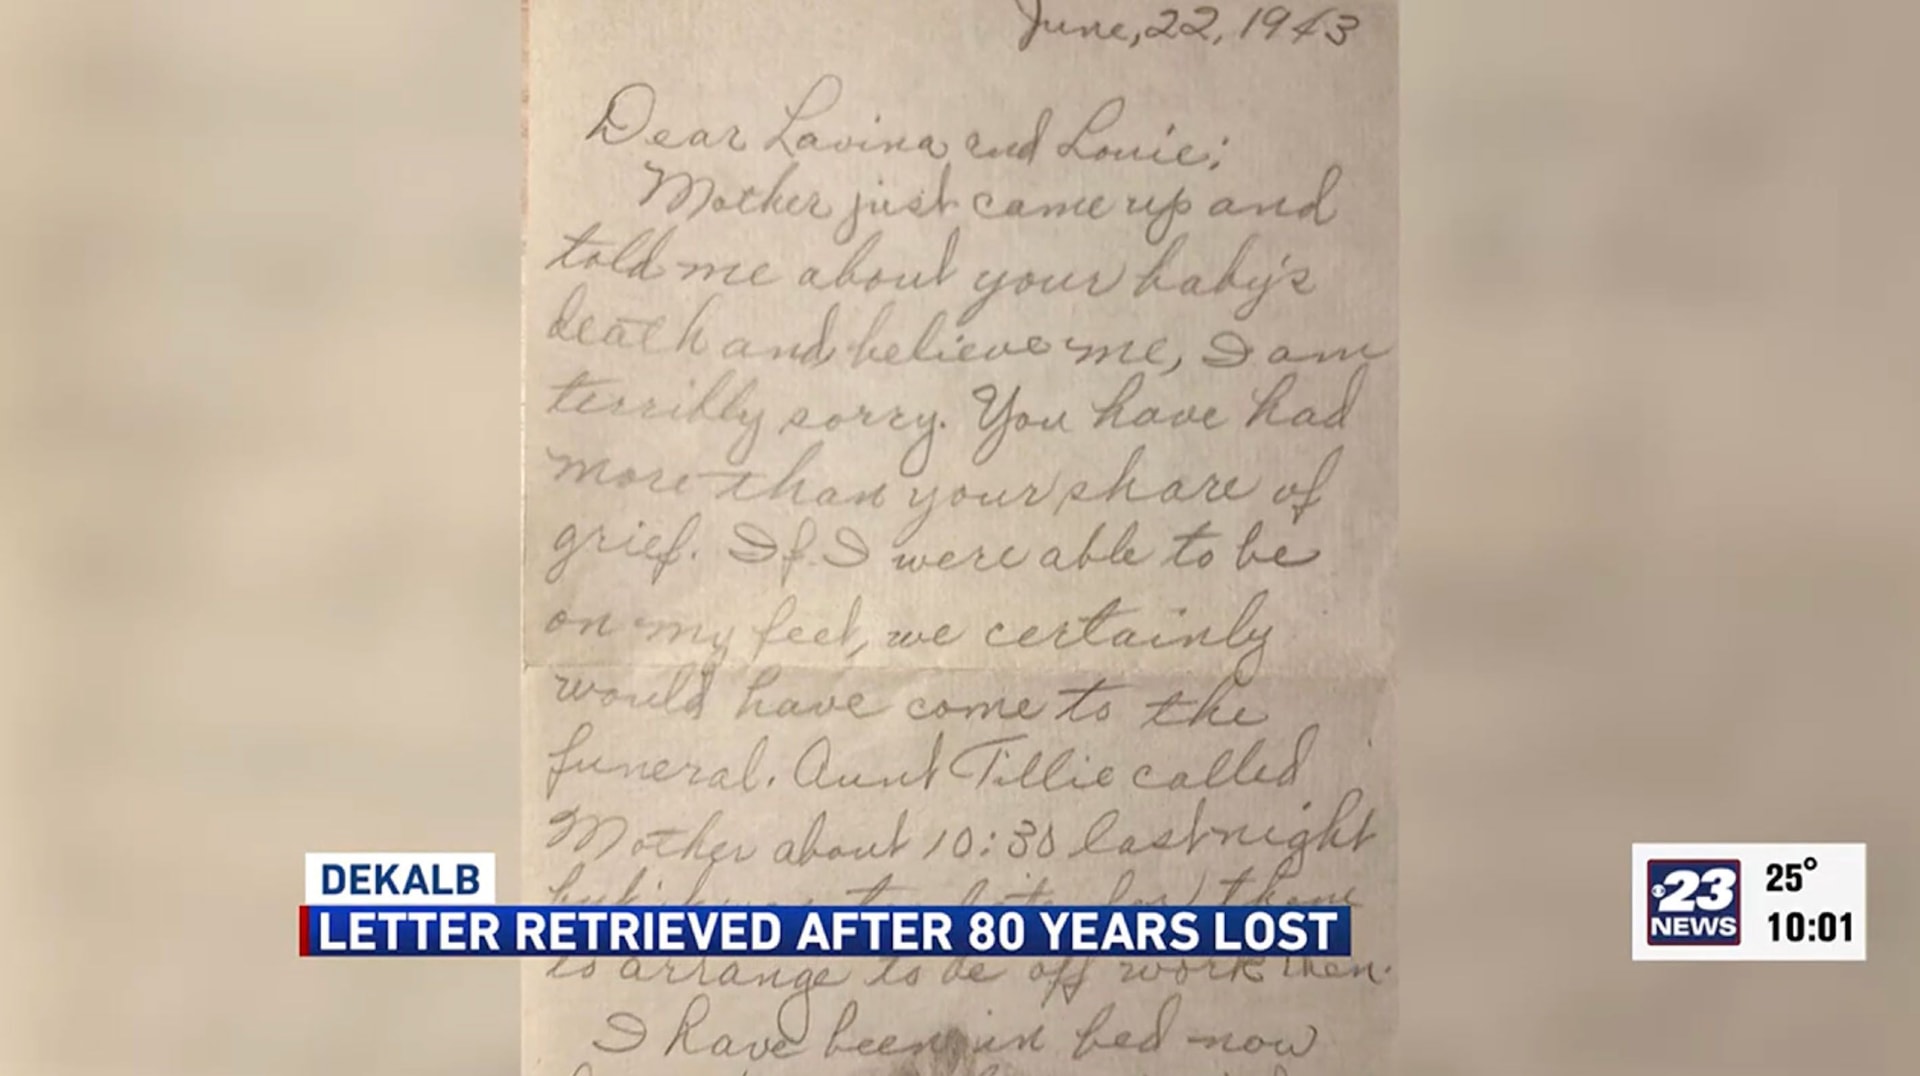 June, 22, 1943
Dear Lavina and Louie:
Mother just came up and
told me about your baby's
death and believe me, I am
terribly sorry. You have had
more than your share of
grief. If I were able to be
on my feet, we certainly
would have come to the
funeral. Aunt Tillie called
Mother about 10:30 last night
to arrange to be off work then.
I have been in bed now
DEKALB
LETTER RETRIEVED AFTER 80 YEARS LOST
23
NEWS
25°
10:01